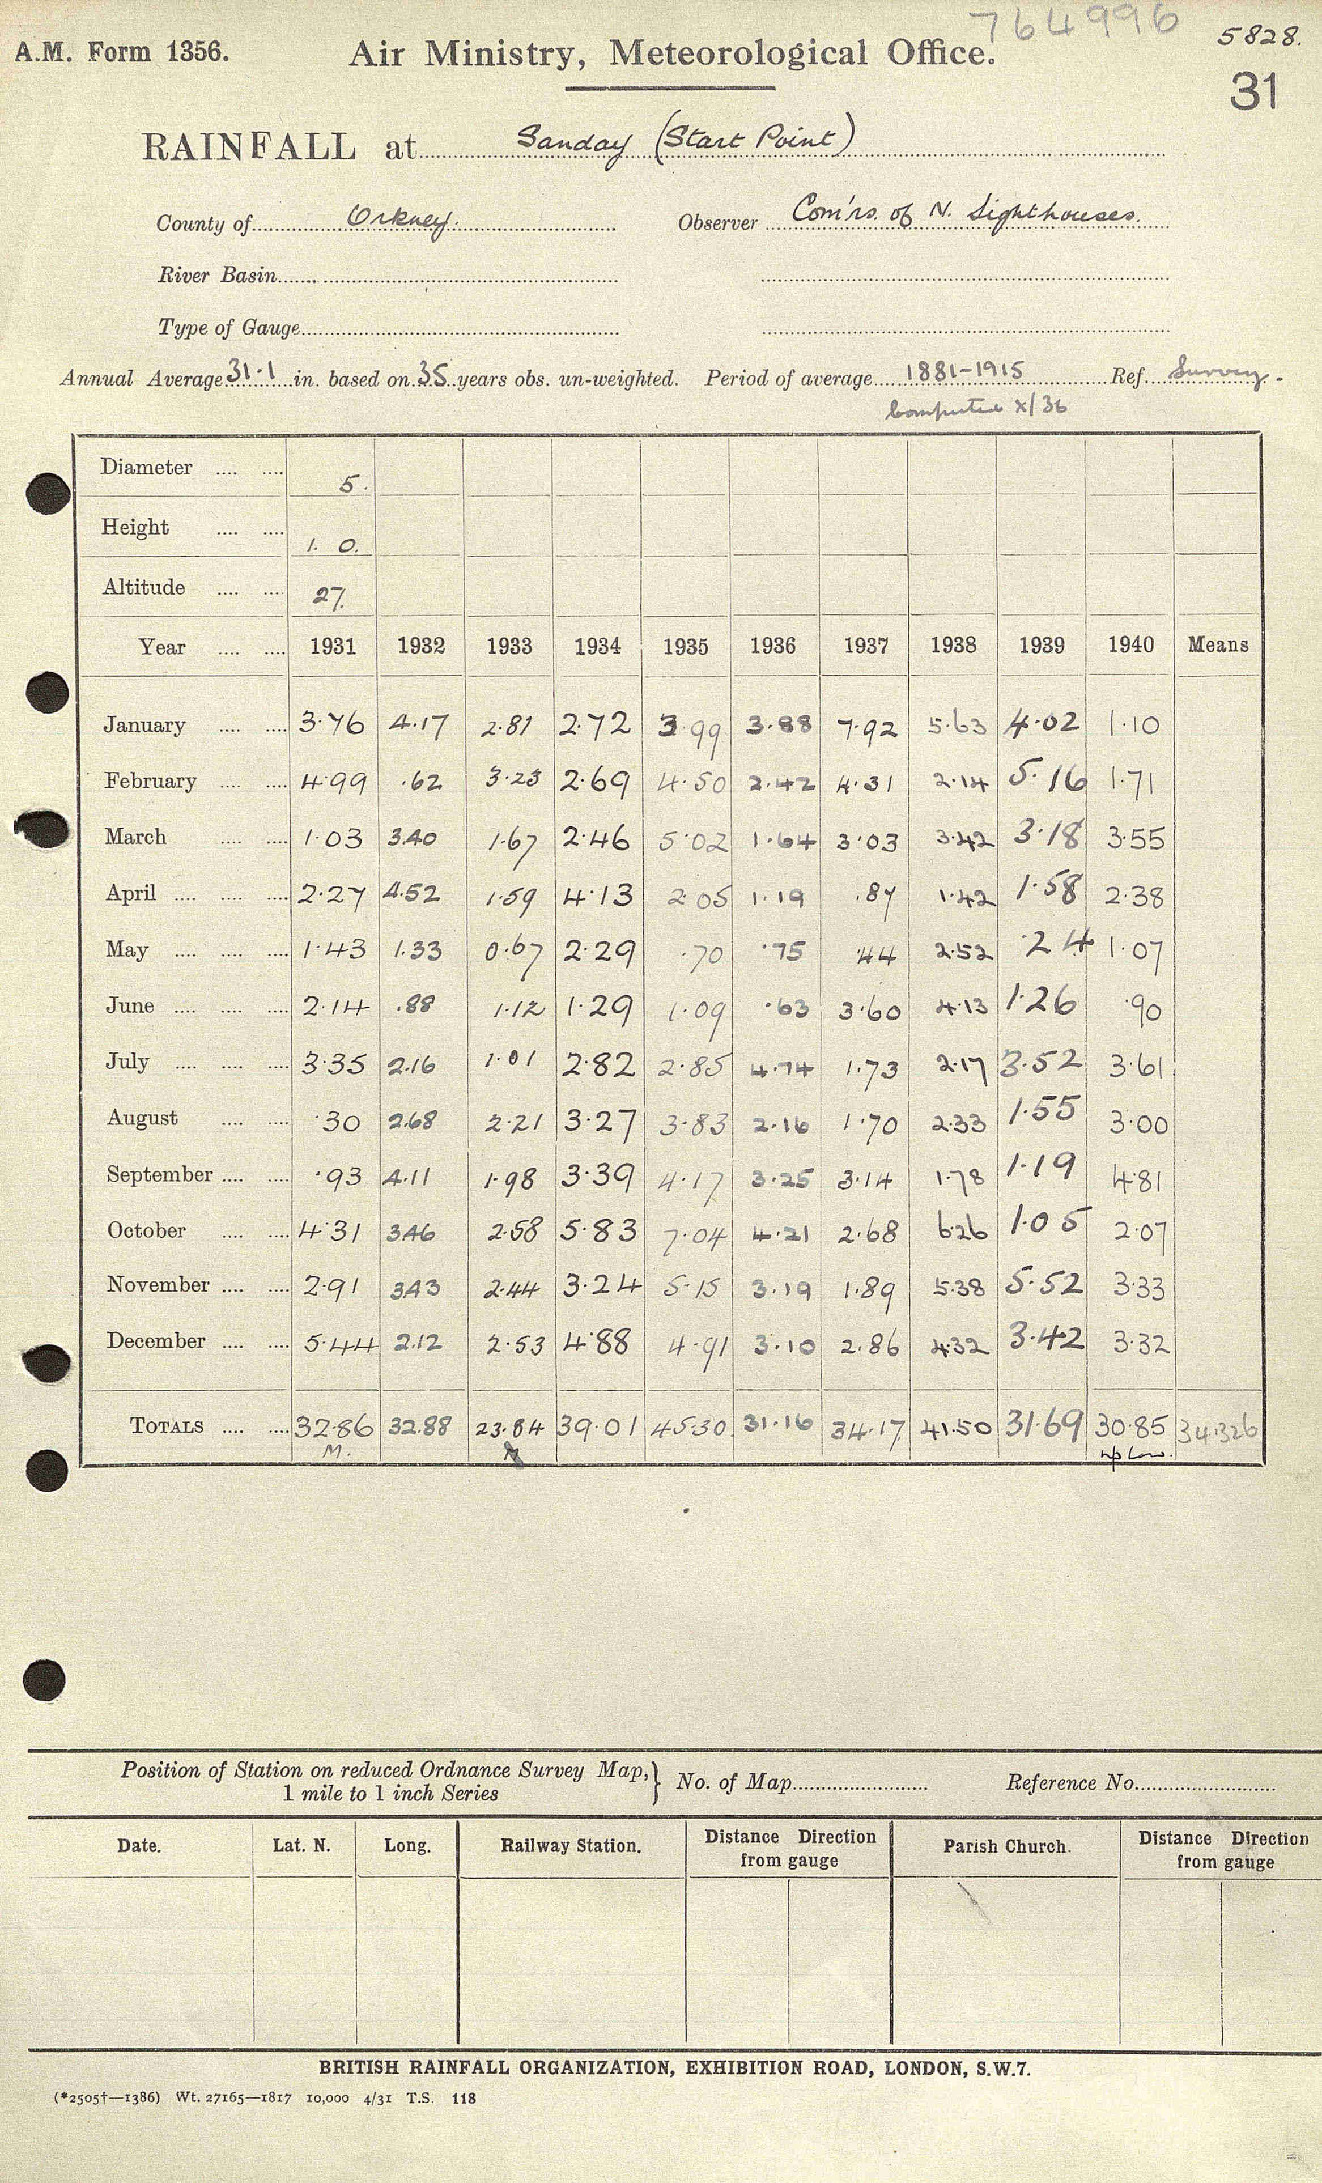 764996
5828.
A.M. Form 1356. Air Ministry, Meteorological Office.
31
RAINFALL at Sanday (Start Point)
County of Orkney. Observer Com'rs. of N. Lighthouses.
River Basin
Type of Gauge
Annual Average 31.1 in. based on 35 years obs. un-weighted. Period of average 1881-1915 Ref. Survey.
Computed X/36
Diameter 5.
Height 1. 0.
Altitude 27.
Year 1931 1932 1933 1934 1935 1936 1937 1938 1939 1940 Means
January 3.76 4.17 2.81 2.72 3.99 3.88 7.92 5.63 4.02 1.10
February 4.99 .62 3.23 2.69 4.50 2.42 4.31 2.14 5.16 1.71
March 1.03 3.40 1.67 2.46 5.02 1.64 3.03 3.42 3.18 3.55
April 2.27 4.52 1.59 4.13 2.05 1.19 .87 1.42 1.58 2.38
May 1.43 1.33 0.67 2.29 .70 .75 .44 2.52 .24 1.07
June 2.14 .88 1.12 1.29 1.09 .63 3.60 4.13 1.26 .90
July 3.35 2.16 1.01 2.82 2.85 4.74 1.73 2.17 3.52 3.61
August .30 2.68 2.21 3.27 3.83 2.16 1.70 2.33 1.55 3.00
September .93 4.11 1.98 3.39 4.17 3.25 3.14 1.78 1.19 4.81
October 4.31 3.46 2.58 5.83 7.04 4.21 2.68 6.26 1.05 2.07
November 2.91 3.43 2.44 3.24 5.15 3.19 1.89 5.38 5.52 3.33
December 5.44 2.12 2.53 4.88 4.91 3.10 2.86 4.32 3.42 3.32
TOTALS 32.86 32.88 23.84 39.01 45.30 31.16 34.17 41.50 31.69 30.85 34.326
M. low.
Position of Station on reduced Ordnance Survey Map, } No. of Map Reference No.
1 mile to 1 inch Series
Date. Lat. N. Long. Railway Station. Distance Direction from gauge Parish Church. Distance Direction from gauge
BRITISH RAINFALL ORGANIZATION, EXHIBITION ROAD, LONDON, S.W.7.
(*2505†—1386) Wt. 27165—1817 10,000 4/31 T.S. 118